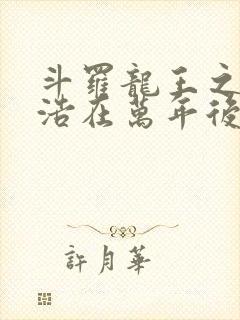 斗羅龍王之
浩在萬年後
許月華